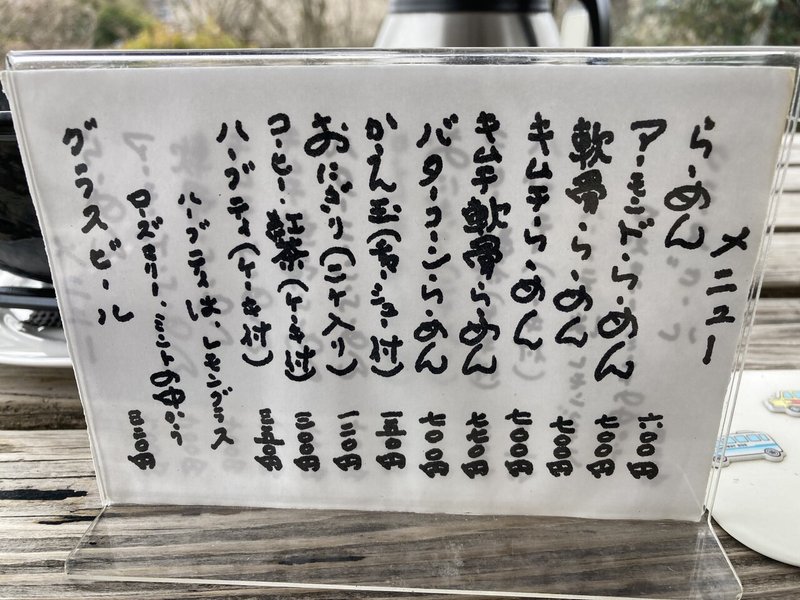 メニュー
らーめん 六〇〇円
アーモンド・らーめん 七〇〇円
軟骨・らーめん 七〇〇円
キムチ・らーめん 七〇〇円
キムチ軟骨らーめん
バターコーンらーめん 七〇〇円
かえ玉(チャーシュー付)
おにぎり(二ヶ入り)
コーヒー・紅茶(ケーキ付) 三〇〇円
ハーブティ(ケーキ付) 三五〇円
ハーブティは、レモングラス
ローズマリー・ミントの中から
グラスビール